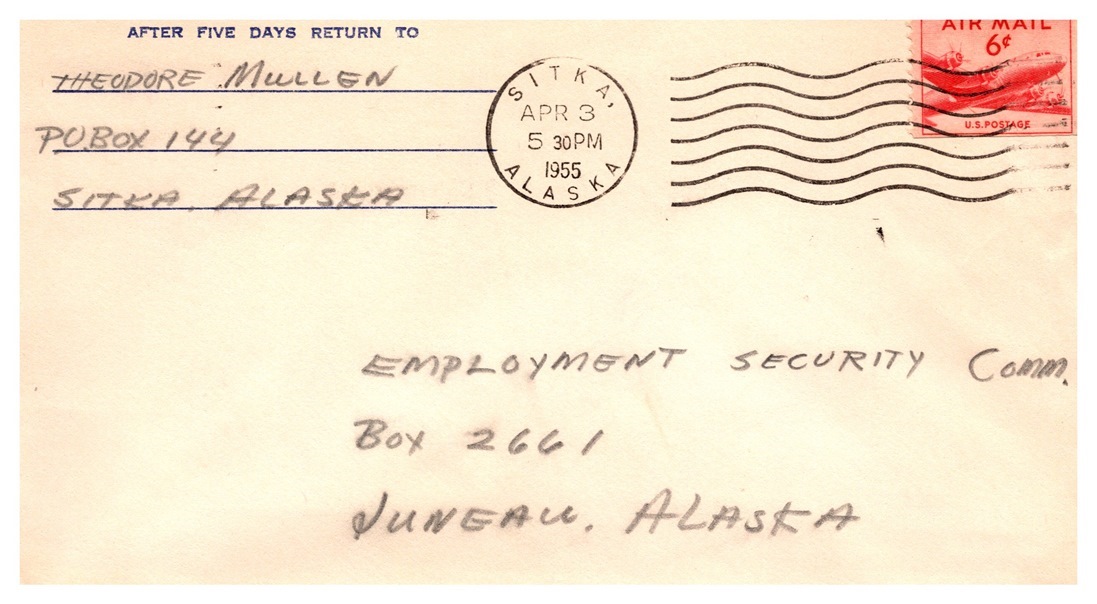 AFTER FIVE DAYS RETURN TO
THEODORE MULLEN
P.O. BOX 144
SITKA, ALASKA
SITKA,
APR 3
5 30PM
1955
ALASKA
AIR MAIL
6¢
U.S. POSTAGE
EMPLOYMENT SECURITY Comm.
Box 2661
JUNEAU, ALASKA